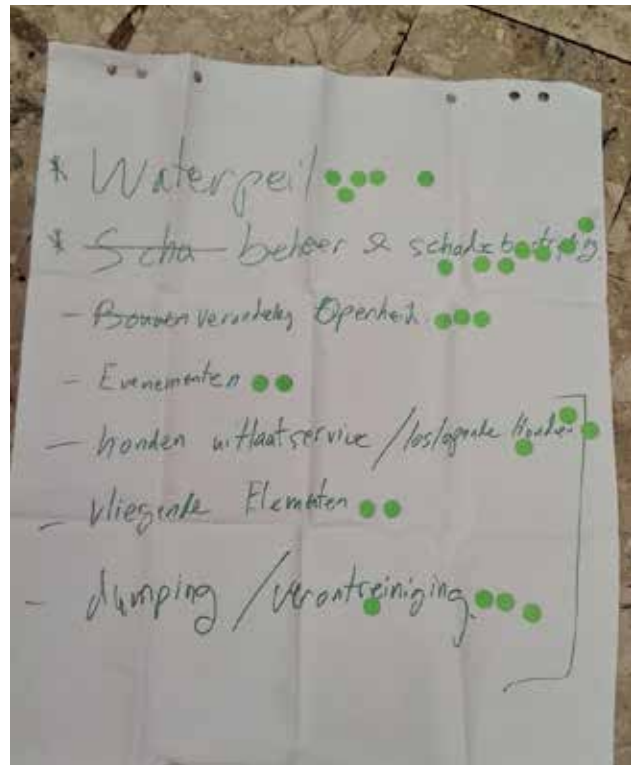 * Waterpeil
* Scha beheer & schade
- Bouwen Openheid
- Evenementen
- honden uitlaatservice / loslopende Honden
- vliegende Elementen
- dumping / verontreiniging